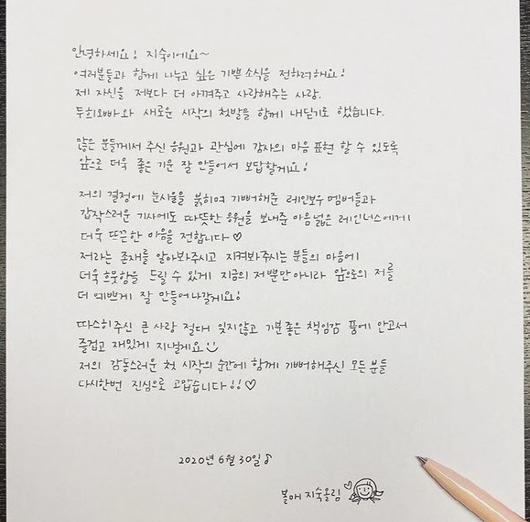 안녕하세요! 지숙이에요~
여러분들과 함께 나누고 싶은 기쁜 소식을 전하려해요!
제 자신을 저보다 더 아껴주고 사랑해주는 사람.
두희오빠와 새로운 시작의 첫발을 함께 내딛기로 했습니다.
많은 분들께서 주신 응원과 관심에 감사의 마음 표현 할 수 있도록
앞으로 더욱 좋은 기운 잘 만들어서 보답할게요!
저의 결정에 눈시울을 붉히며 기뻐해준 레인보우 멤버들과
갑작스러운 기사에도 따뜻한 응원을 보내준 마음 넓은 레인너스에게
더욱 뜨끈한 마음을 전합니다♡
저라는 존재를 알아봐주시고 지켜봐주시는 분들의 마음에
더욱 흐뭇함을 드릴 수 있게 지금의 저뿐만 아니라 앞으로의 저를
더 예쁘게 잘 만들어나갈게요!
따스히주신 큰 사랑 절대 잊지않고 기분좋은 책임감 품에 안고서
즐겁고 재밌게 지낼게요
저의 감동스러운 첫 시작의 순간에 함께 기뻐해주신 모든 분들
다시한번 진심으로 고맙습니다!!♡
2020년 6월 30일♪
볼매 지숙올림